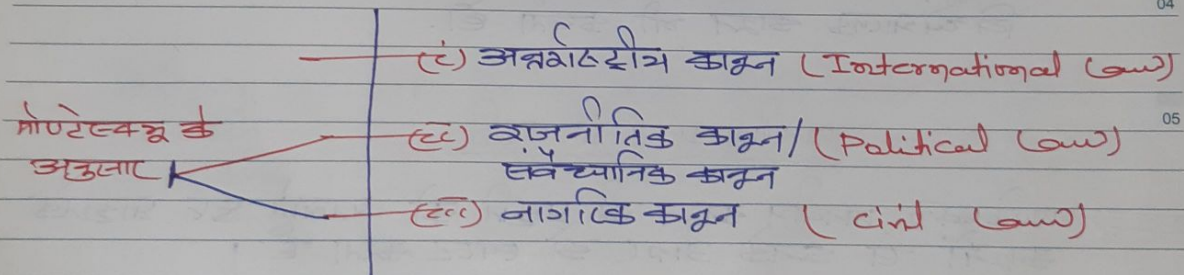 04
(i) अन्तर्राष्ट्रीय कानून (International Law)
मोण्टेस्क्यू के
अनुसार
(ii) राजनीतिक कानून/ (Political Law)
05
संवैधानिक कानून
(iii) नागरिक कानून (Civil Law)